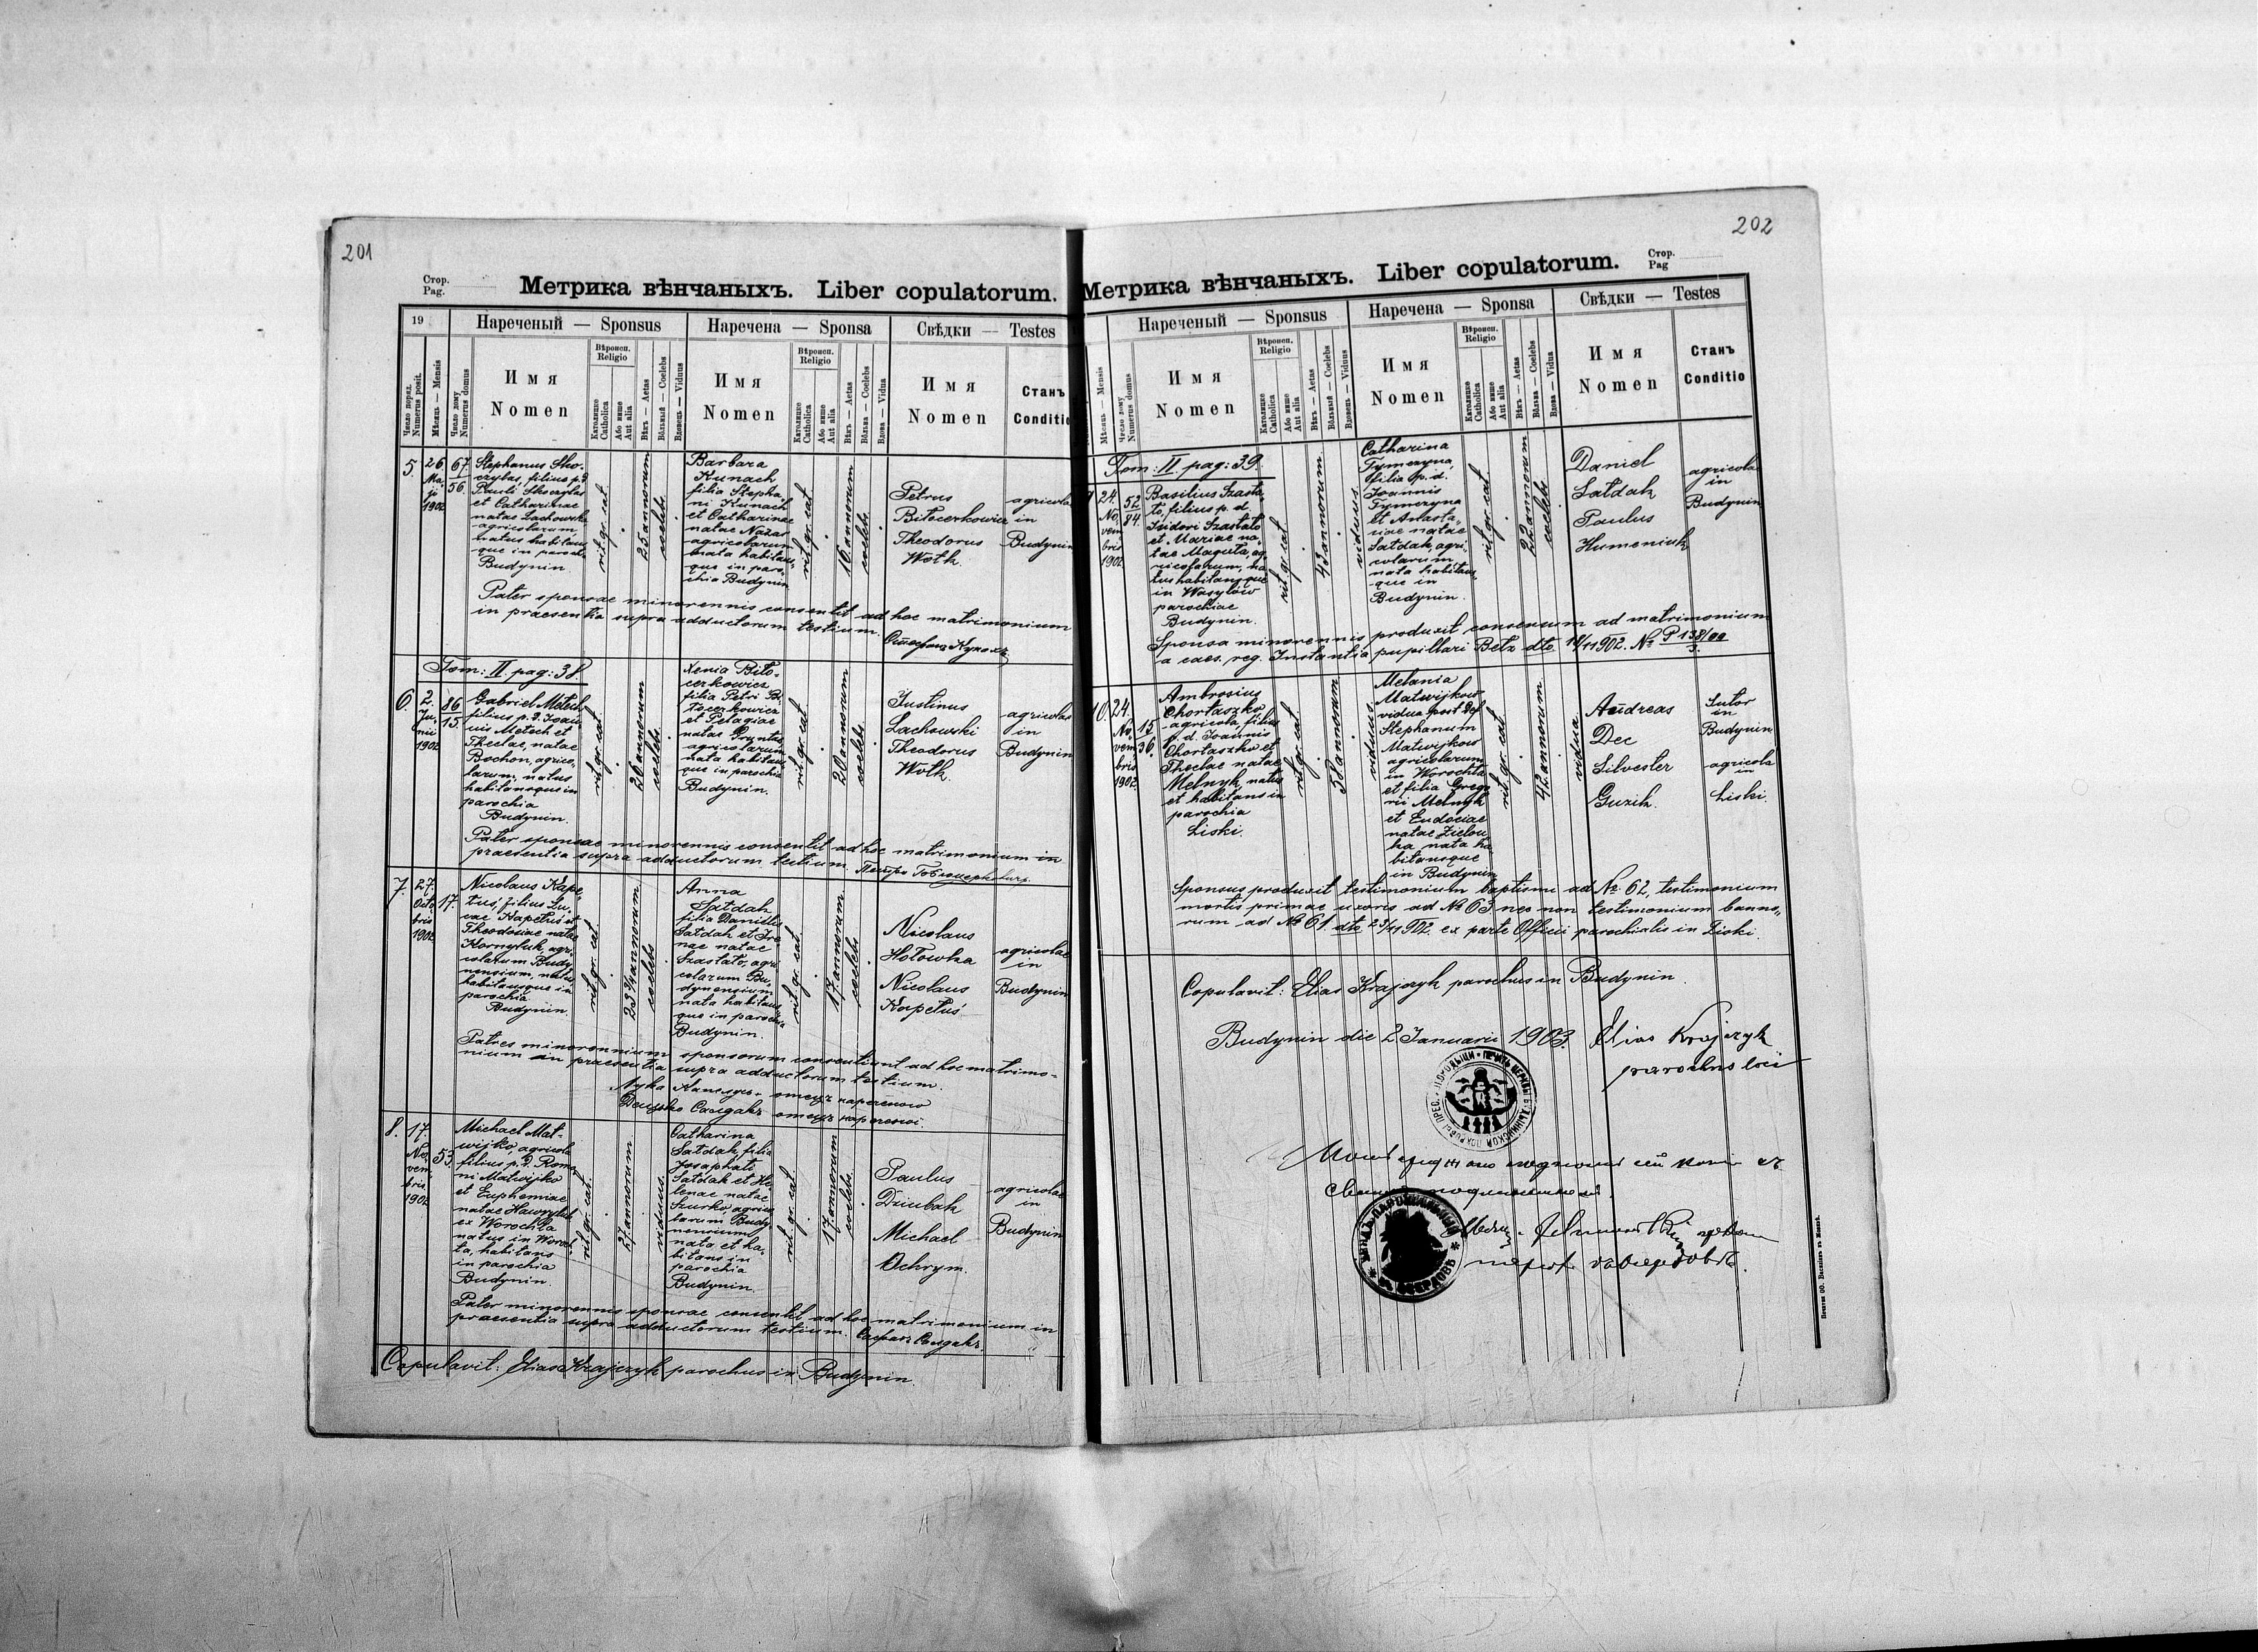 201
Стор.
Pag.
Метрика вѣнчаныхъ. Liber copulatorum.
19
Нареченый — Sponsus
Наречена — Sponsa
Свѣдки — Testes
Число поряд.
Numerus posit.
Мѣсяць — Mensis
Число дому
Numerus domus
Имя
Nomen
Вѣроисп.
Religio
Католицке
Catholica
Або инше
Aut alia
Вѣкъ — Aetas
Вôльный — Coelebs
Вдовець — Viduus
Имя
Nomen
Вѣроисп.
Religio
Католицке
Catholica
Або инше
Aut alia
Вѣкъ — Aetas
Вôльна — Coelebs
Вдова — Vidua
Имя
Nomen
Станъ
Conditio
5.
26
Ma-
ji
1902
67.
56.
Stephanus Sko-
czylas, filius p. d.
Pauli Skoczylas
et Catharinae
natae Lachowska
agricolarum
natus habitans-
que in parochia
Budynin
rit. gr. cat.
25 annorum
coelebs
Barbara
Kunach
filia Stepha-
ni Kunach
et Catharinae
natae Nazar
agricolarum
nata habitans-
que in paro-
chia Budynin
rit. gr. cat.
16 annorum
coelebs
Petrus
Bitocerkowicz
Theodorus
Woth.
agricolae
in
Budynin
Pater sponsae minorennis consentit ad hoc matrimonium
in praesentia supra adductorum testium.
Tom: II. pag: 38.
6.
2.
Ju-
nii
1902
86
15.
Gabriel Metech
filius p. d. Joan-
nis Metech et
Theclae, natae
Bochon, agrico-
larum, natus
habitansque in
parochia
Budynin.
rit. gr. cat.
26 annorum
coelebs
Xenia Bito-
cerkowicz
filia Petri Bi-
tocerkowicz
et Pelagiae
natae
agricolarum
nata habitans-
que in parochia
Budynin.
rit. gr. cat.
20 annorum
coelebs
Justinus
Lachowski
Theodorus
Woth.
agricolae
in
Budynin
Pater sponsae minorennis consentit ad hoc matrimonium in
praesentia supra adductorum testium.
7.
27.
Octo-
bris
1902
17.
Nicolaus Kape-
tuś, filius Lu-
cae Kapetuś et
Theodosiae natae
Kornyluk, agri-
colarum Budy-
nensium, natus
habitansque in
parochia
Budynin.
rit. gr. cat.
23 3/4 annorum
coelebs
Anna
Satdak
filia Danielis
Satdak et Ire-
nae natae
Szastato, agri-
colarum Bu-
dynensium
nata habitans-
que in parochia
Budynin.
rit. gr. cat.
17 annorum
coelebs
Nicolaus
Hotowka
Nicolaus
Kapetuś
agricolae
in
Budynin
Patres minorennium sponsorum consentiunt ad hoc matrimo-
nium in praesentia supra adductorum testium.
8.
17.
No-
vem-
bris
1902
53.
Michael Mat-
wijko, agricola
filius p. d. Roma-
ni Matwijko
et Euphemiae
natae Hawryluk
ex Worochta
natus in Woroch-
ta, habitans
in parochia
Budynin.
rit. gr. cat.
27 annorum
viduus
Catharina
Satdak, filia
Josaphati
Satdak et He-
lenae natae
Szurko agrico-
larum Budy-
nensium
nata et ha-
bitans in
parochia
Budynin.
rit. gr. cat.
17 annorum
coelebs
Paulus
Dziubak
Michael
Ochrym.
agricolae
in
Budynin
Pater minorennis sponsae consentit ad hoc matrimonium in
praesentia supra adductorum testium.
Copulavit: Elias Krajczyk parochus in Budynin.
202
Стор.
Pag
Метрика вѣнчаныхъ. Liber copulatorum.
Нареченый — Sponsus
Наречена — Sponsa
Свѣдки — Testes
Мѣсяць — Mensis
Число дому
Numerus domus
Имя
Nomen
Вѣроисп.
Religio
Католицке
Catholica
Або инше
Aut alia
Вѣкъ — Aetas
Вôльный — Coelebs
Вдовець — Viduus
Имя
Nomen
Вѣроисп.
Religio
Католицке
Catholica
Або инше
Aut alia
Вѣкъ — Aetas
Вôльна — Coelebs
Вдова — Vidua
Имя
Nomen
Станъ
Conditio
Tom: II pag: 39.
24.
No-
vem-
bris
1902
52
84.
Basilius Szasta-
to, filius p. d.
Isidori Szastato
et Mariae na-
tae Maguta, ag-
ricolarum, na-
tus habitansque
in Wasylow
parochiae
Budynin.
rit. gr. cat.
43 annorum
viduus
Catharina
Tymczyna
filia p. d.
Joannis
Tymczyna
et Anasta-
siae natae
Satdak, agri-
colarum
nata habitans-
que in
Budynin.
rit. gr. cat.
22 annorum
coelebs
Daniel
Satdak
Paulus
Humeniuk
agricolae
in
Budynin
Sponsa minorennis produxit consensum ad matrimonium
a caes. reg. Instantia pupillari Betz dto 14/11 902. No P 138/00
10.
24.
No-
vem-
bris
1902
15.
36.
Ambrosius
Chortaszko
agricola, filius
p. d. Joannis
Chortaszko et
Theclae natae
Melnyk, natus
et habitans in
parochia
Liski.
rit. gr. cat
58 annorum
viduus
Melania
Matwijkow
vidua post def.
Stephanum
Matwijkow
agricolarum
in Worochta
et filia Grego-
rii Melnyk
et Eudociae
natae
nata ha-
bitansque
in Budynin
rit. gr. cat
42 annorum
vidua
Andreas
Dec
Silvester
Guzik.
Sutor
in
Budynin
agricola
in
Liski.
Sponsus produxit testimonium baptismi ad No 62, testimonium
mortis primae uxoris ad No 63 nec non testimonium banno-
rum ad No 61 dto 23/11 902 ex parte Officii parochialis in Liski.
Copulavit: Elias Krajczyk parochus in Budynin.
Budynin die 2 Januarii 1903. Elias Krajczyk
parochus loci